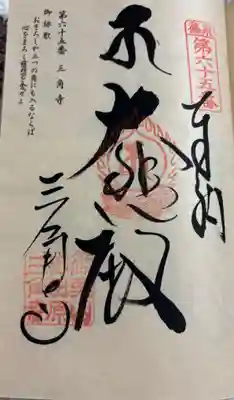 第六十五番
奉納
大悲殿
三角寺
第六十五番 三角寺
御詠歌
おそろしや三つの角にも入るならば
心をまろく慈悲を念ぜよ